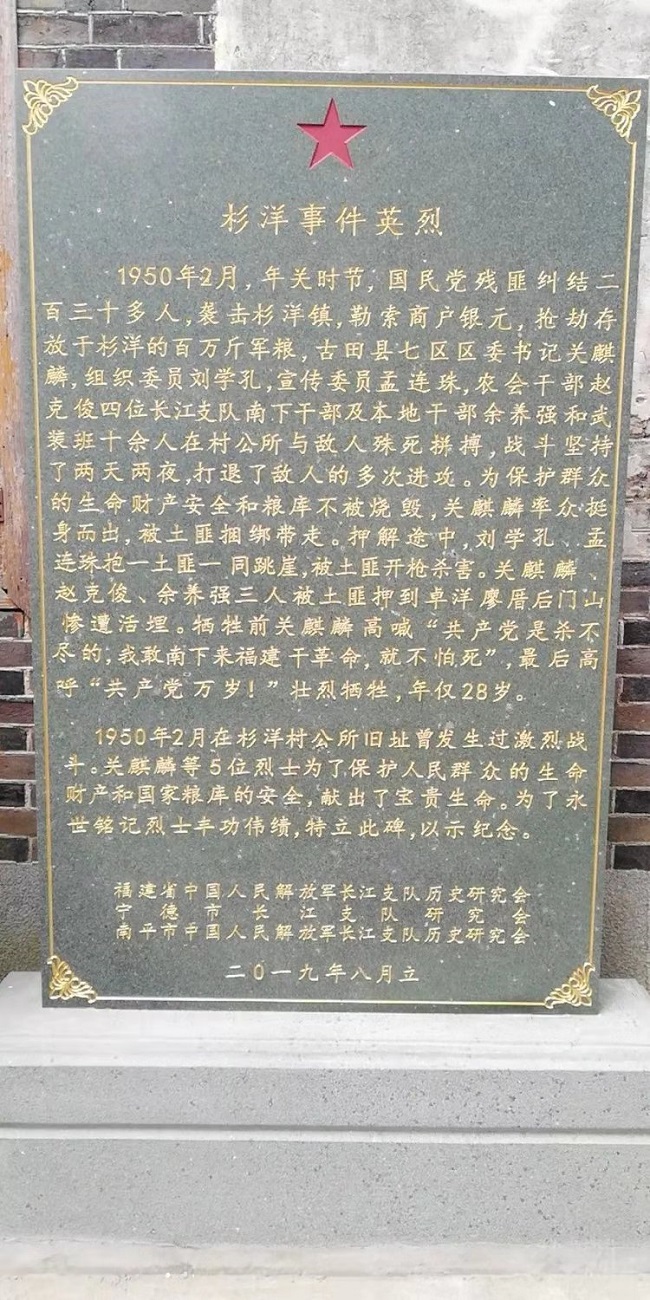 杉洋事件英烈
1950年2月，年关时节，国民党残匪纠结二
百三十多人，袭击杉洋镇，勒索商户银元，抢劫存
放于杉洋的百万斤军粮，古田县七区区委书记关麒
麟，组织委员刘学孔，宣传委员孟连珠，农会干部赵
克俊四位长江支队南下干部及本地干部余养强和武
装班十余人在村公所与敌人殊死拼搏，战斗坚持
了两天两夜，打退了敌人的多次进攻。为保护群众
的生命财产安全和粮库不被烧毁，关麒麟率众挺
身而出，被土匪捆绑带走。押解途中，刘学孔、孟
连珠抱一土匪一同跳崖，被土匪开枪杀害。关麒麟、
赵克俊、余养强三人被土匪押到卓洋廖厝后门山
惨遭活埋。牺牲前关麒麟高喊“共产党是杀不
尽的，我敢南下来福建干革命，就不怕死”，最后高
呼“共产党万岁！”壮烈牺牲，年仅28岁。
1950年2月在杉洋村公所旧址曾发生过激烈战
斗。关麒麟等5位烈士为了保护人民群众的生命
财产和国家粮库的安全，献出了宝贵生命。为了永
世铭记烈士丰功伟绩，特立此碑，以示纪念。
福建省中国人民解放军长江支队历史研究会
宁德市长江支队研究会
南平市中国人民解放军长江支队历史研究会
二0一九年八月立